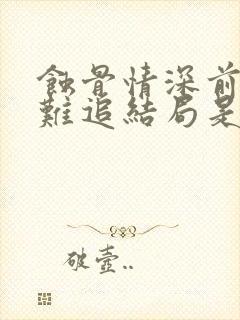 蝕骨情深前
難追結局是
破壺..